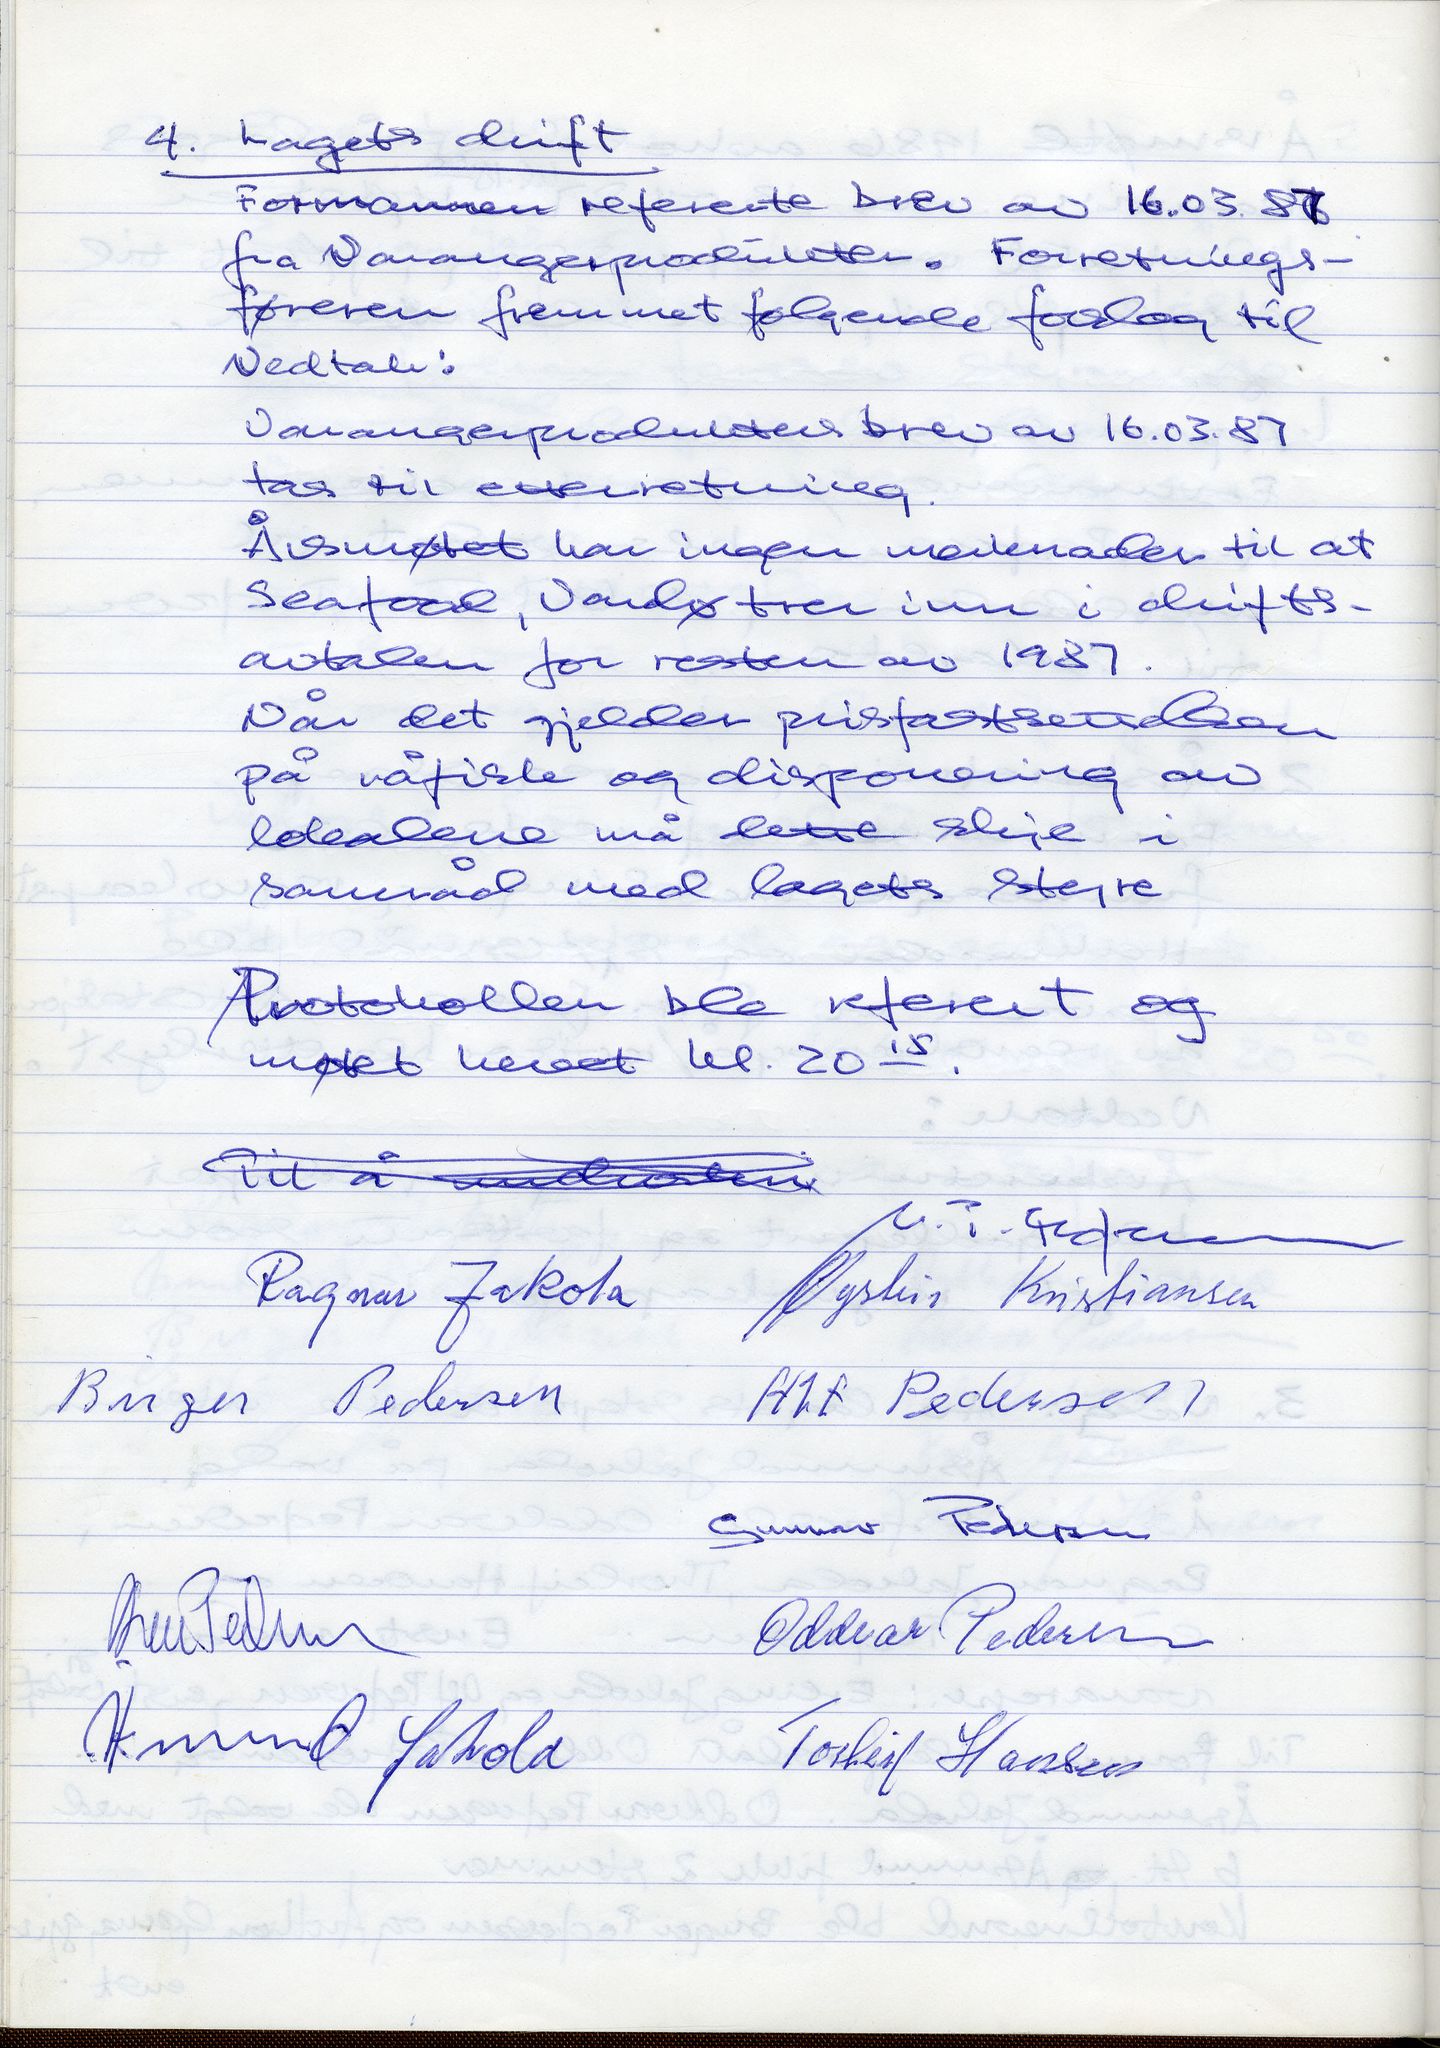 4. Lagets drift
Formannen refererte brev av 16.03.87
fra Varangerprodukter. Forretnings-
føreren fremmet følgende forslag til
Vedtak:
Varangerprodukters brev av 16.03.87
tas til etterretning.
Årsmøtet har ingen merknader til at
Seafood, Vardø trer inn i drifts-
avtalen for resten av 1987.
Når det gjelder prisfastsettelsen
på råfisk og disponering av
lokalene må dette skje i
samråd med lagets styre
Protokollen ble referert og
møtet hevet kl. 20 15.
Til å
Ragnar Jakola Øystein Kristiansen
Birger Pedersen Alf Pedersen
Gunnar Pedersen
Oddvar Pedersen
Åsmund Jakola Torleif Hansen